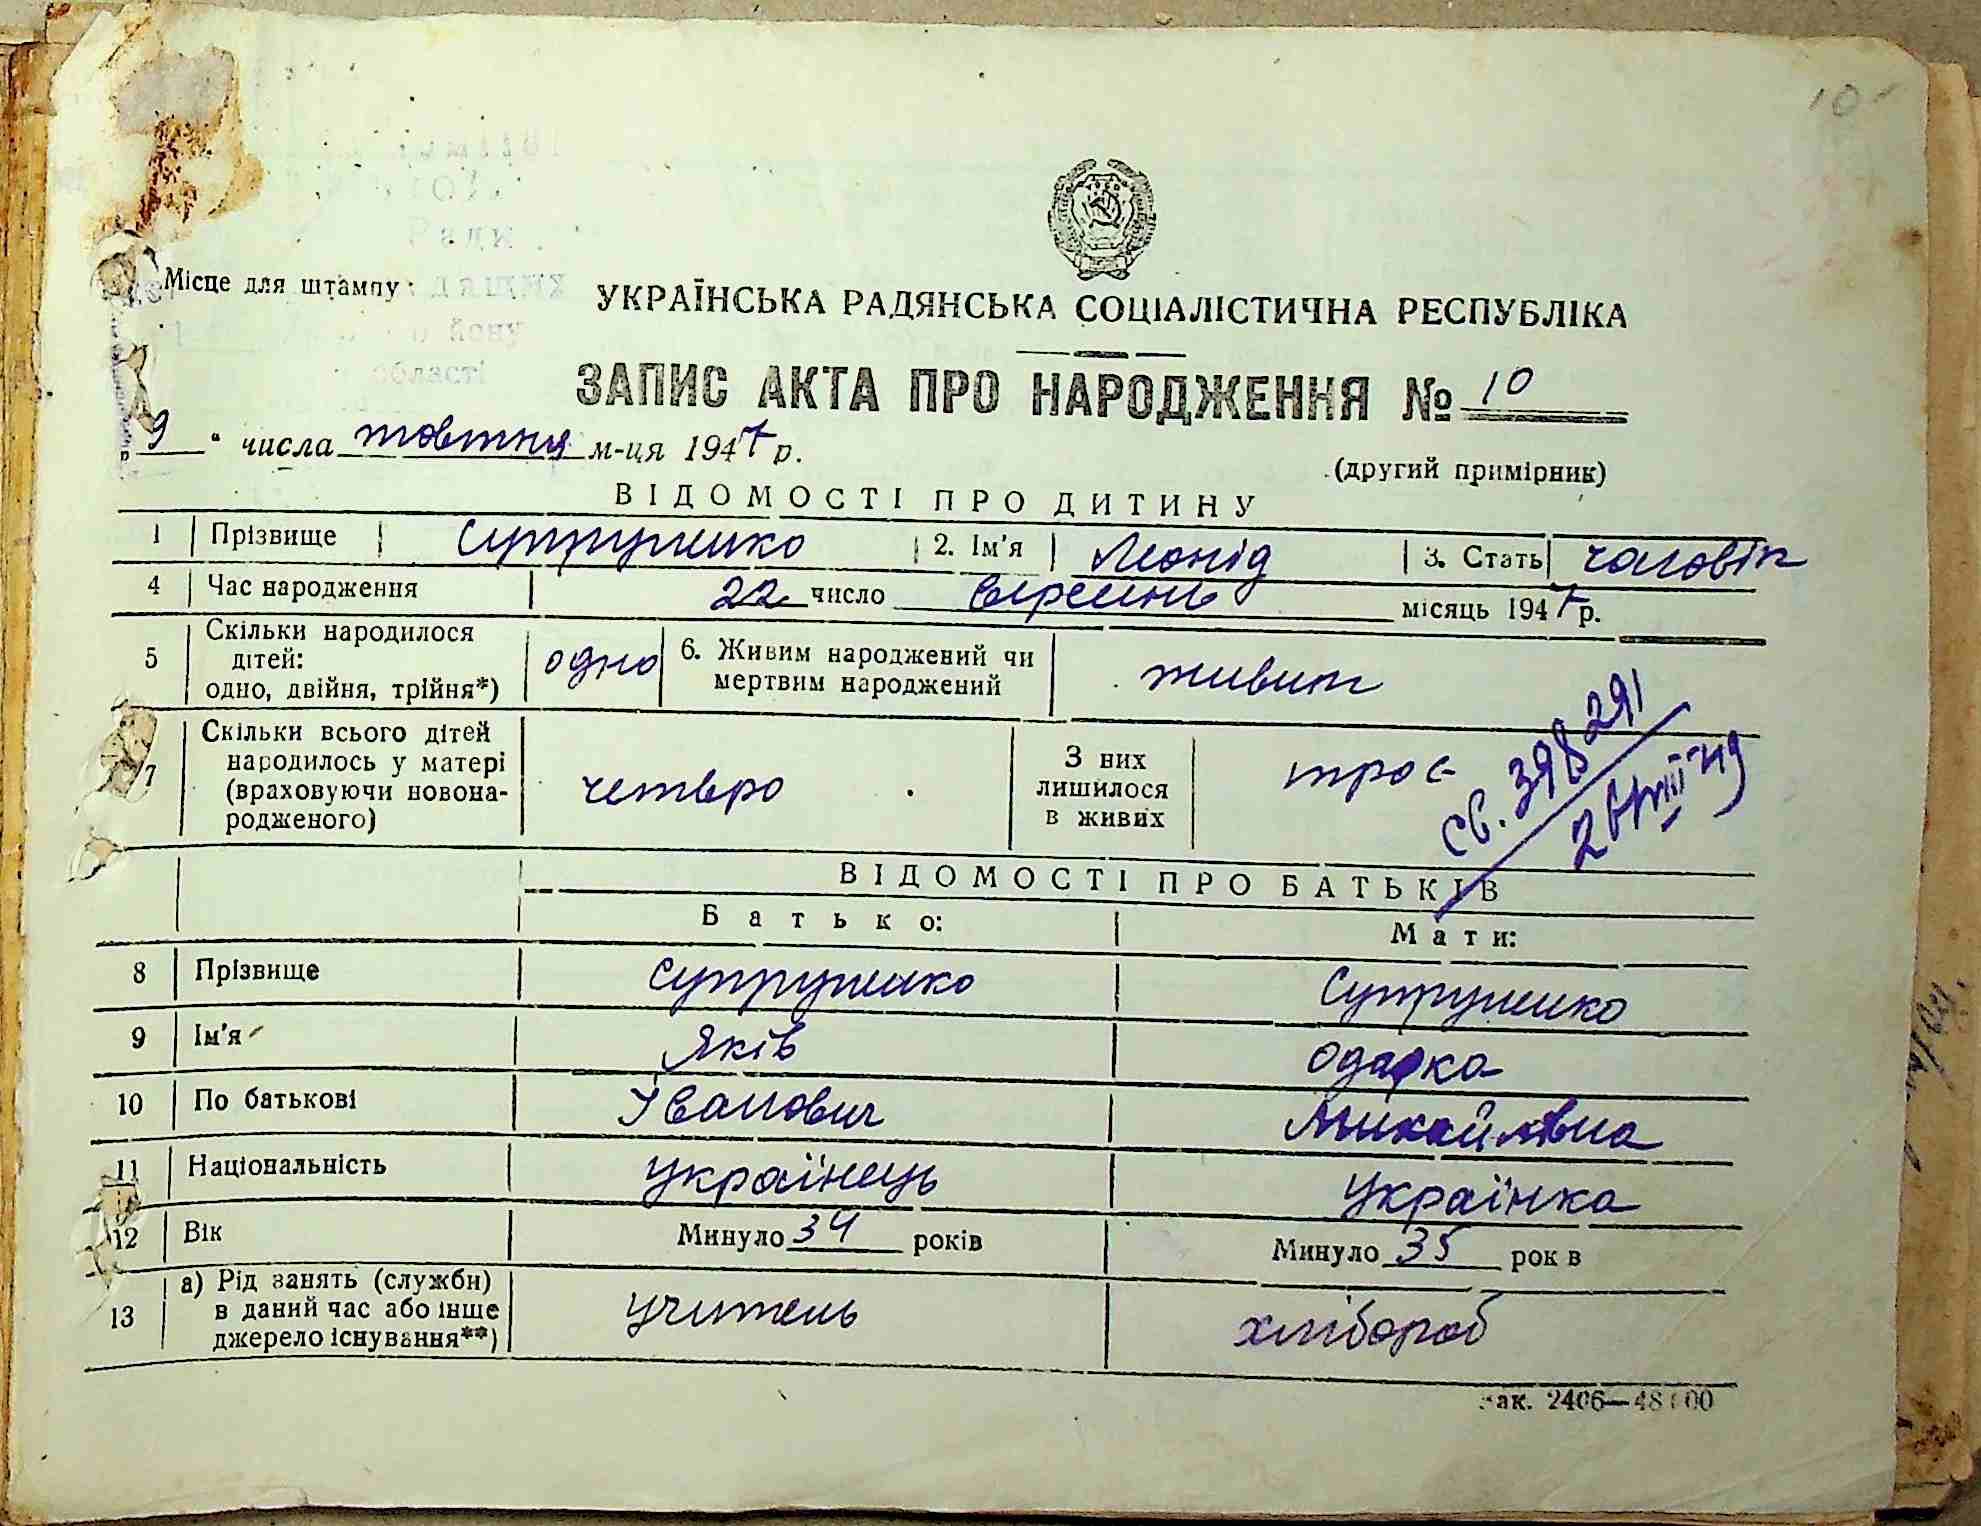 10
Ради
області
Місце для штампу:
УКРАЇНСЬКА РАДЯНСЬКА СОЦІАЛІСТИЧНА РЕСПУБЛІКА
ЗАПИС АКТА ПРО НАРОДЖЕННЯ № 10
„ 9 “ числа жовтня м-ця 1947 р.
(другий примірник)
ВІДОМОСТІ ПРО ДИТИНУ
1 Прізвище Супруненко 2. Ім'я Леонід 3. Стать чоловік
4 Час народження 22 число вересень місяць 1947 р.
5 Скільки народилося дітей: одно, двійня, трійня*) одно 6. Живим народжений чи мертвим народжений живим
7 Скільки всього дітей народилось у матері (враховуючи новонародженого) четверо З них лишилося в живих троє
св. 398291
ВІДОМОСТІ ПРО БАТЬКІВ
Батько: Мати:
8 Прізвище Супруненко Супруненко
9 Ім'я Яків Одарка
10 По батькові Іванович Михайлівна
11 Національність українець українка
12 Вік Минуло 34 років Минуло 35 рок в
13 а) Рід занять (служби) в даний час або інше джерело існування**) учитель хлібороб
Зак. 2406—48000